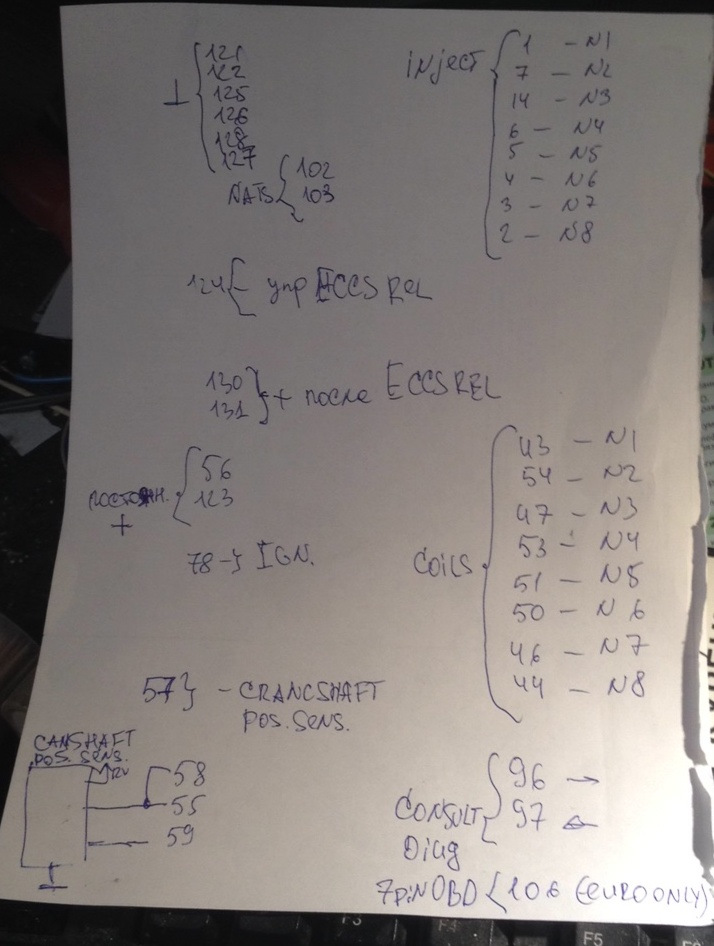 ⊥ { 121
122
125
126
128
127
NATS { 102
103
INJECT { 1 – N1
7 – N2
14 – N3
6 – N4
5 – N5
4 – N6
3 – N7
2 – N8
124 { – упр ECCS REL
130
131 } + после ECCS REL
постоян. + { 56
123
78 –} IGN.
COILS { 43 – N1
54 – N2
47 – N3
53 – N4
51 – N5
50 – N6
46 – N7
44 – N8
57 } – CRANCSHAFT
POS. SENS.
CAMSHAFT
POS. SENS.
12V
58
55
59
⊥
CONSULT
Diag { 96 →
97 ←
7piNOBD { 106 (EURO ONLY)
F3
F4
F5
F6